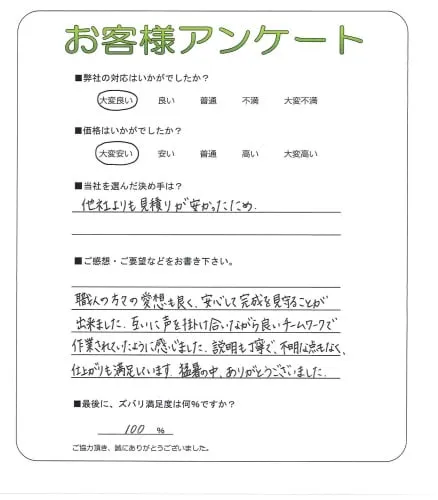 お客様アンケート
■弊社の対応はいかがでしたか？
大変良い 良い 普通 不満 大変不満
■価格はいかがでしたか？
大変安い 安い 普通 高い 大変高い
■当社を選んだ決め手は？
他社よりも見積りが安かったため.
■ご感想・ご要望などをお書き下さい。
職人の方々の愛想も良く、安心して完成を見守ることが
出来ました. 互いに声を掛け合いながら良いチームワークで
作業されていたように感じました. 説明も丁寧で、不明な点もなく、
仕上がりも満足しています. 猛暑の中、ありがとうございました.
■最後に、ズバリ満足度は何％ですか？
100 ％
ご協力頂き、誠にありがとうございました。